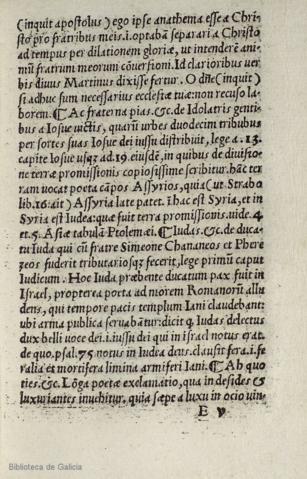 (inquit apostolus) ego ipse anathema esse a Chri-
sto pro fratribus meis.i.optabã separari a Christo
ad tempus per dilationem gloriæ, ut intenderẽ ani-
mũ fratrum meorum cõuersioni. Id clarioribus uer
bis diuus Martinus dixisse fertur. O dñe (inquit)
si adhuc sum necessarius ecclesiæ tuæ: non recuso la-
borem. ¶ Ac fraterna pias. &c. de Idolatris genti-
bus a Iosue uictis, quarũ urbes duodecim tribubus
per sortes suas Iosue dei iussu distribuit, lege a .13.
capite Iosue usqꝫ ad.19.eiusdẽ, in quibus de diuisio-
ne terræ promissionis copiosissime scribitur. hãc ter
ram uocat poeta cãpos Assyrios, quia (ut Strabo
lib.16.ait) Assyria late patet. I hac est Syria, et in
Syria est Iudea: quæ fuit terra promissionis. uide.4.
et.5. Asiæ tabulã Ptolemæi. ¶ Iudas. &c. de duca-
tu Iuda qui cũ fratre Simeone Chananeos et Phere
zeos fuderit tributariosqꝫ fecerit, lege primũ caput
Iudicum. Hoc Iuda præbente ducatum pax fuit in
Israel, propterea poeta ad morem Romanorũ allu
dens, qui tempore pacis templum Iani claudebant:
ubi arma publica seruabãtur: dicit ꝗ Iudas delectus
dux belli uoce dei.i.iussu dei qui in israel notus erat.
de quo.psal.75 notus in Iudea deus. clausit fera.i.fe
ralia et mortifera limina armiferi Iani. ¶ Ab quo
ties. &c. Lõga poetæ exclamatio, qua in desides &
luxuriantes inuehitur. quia sæpe a luxu in ocio uin-
E v
Biblioteca de Galicia